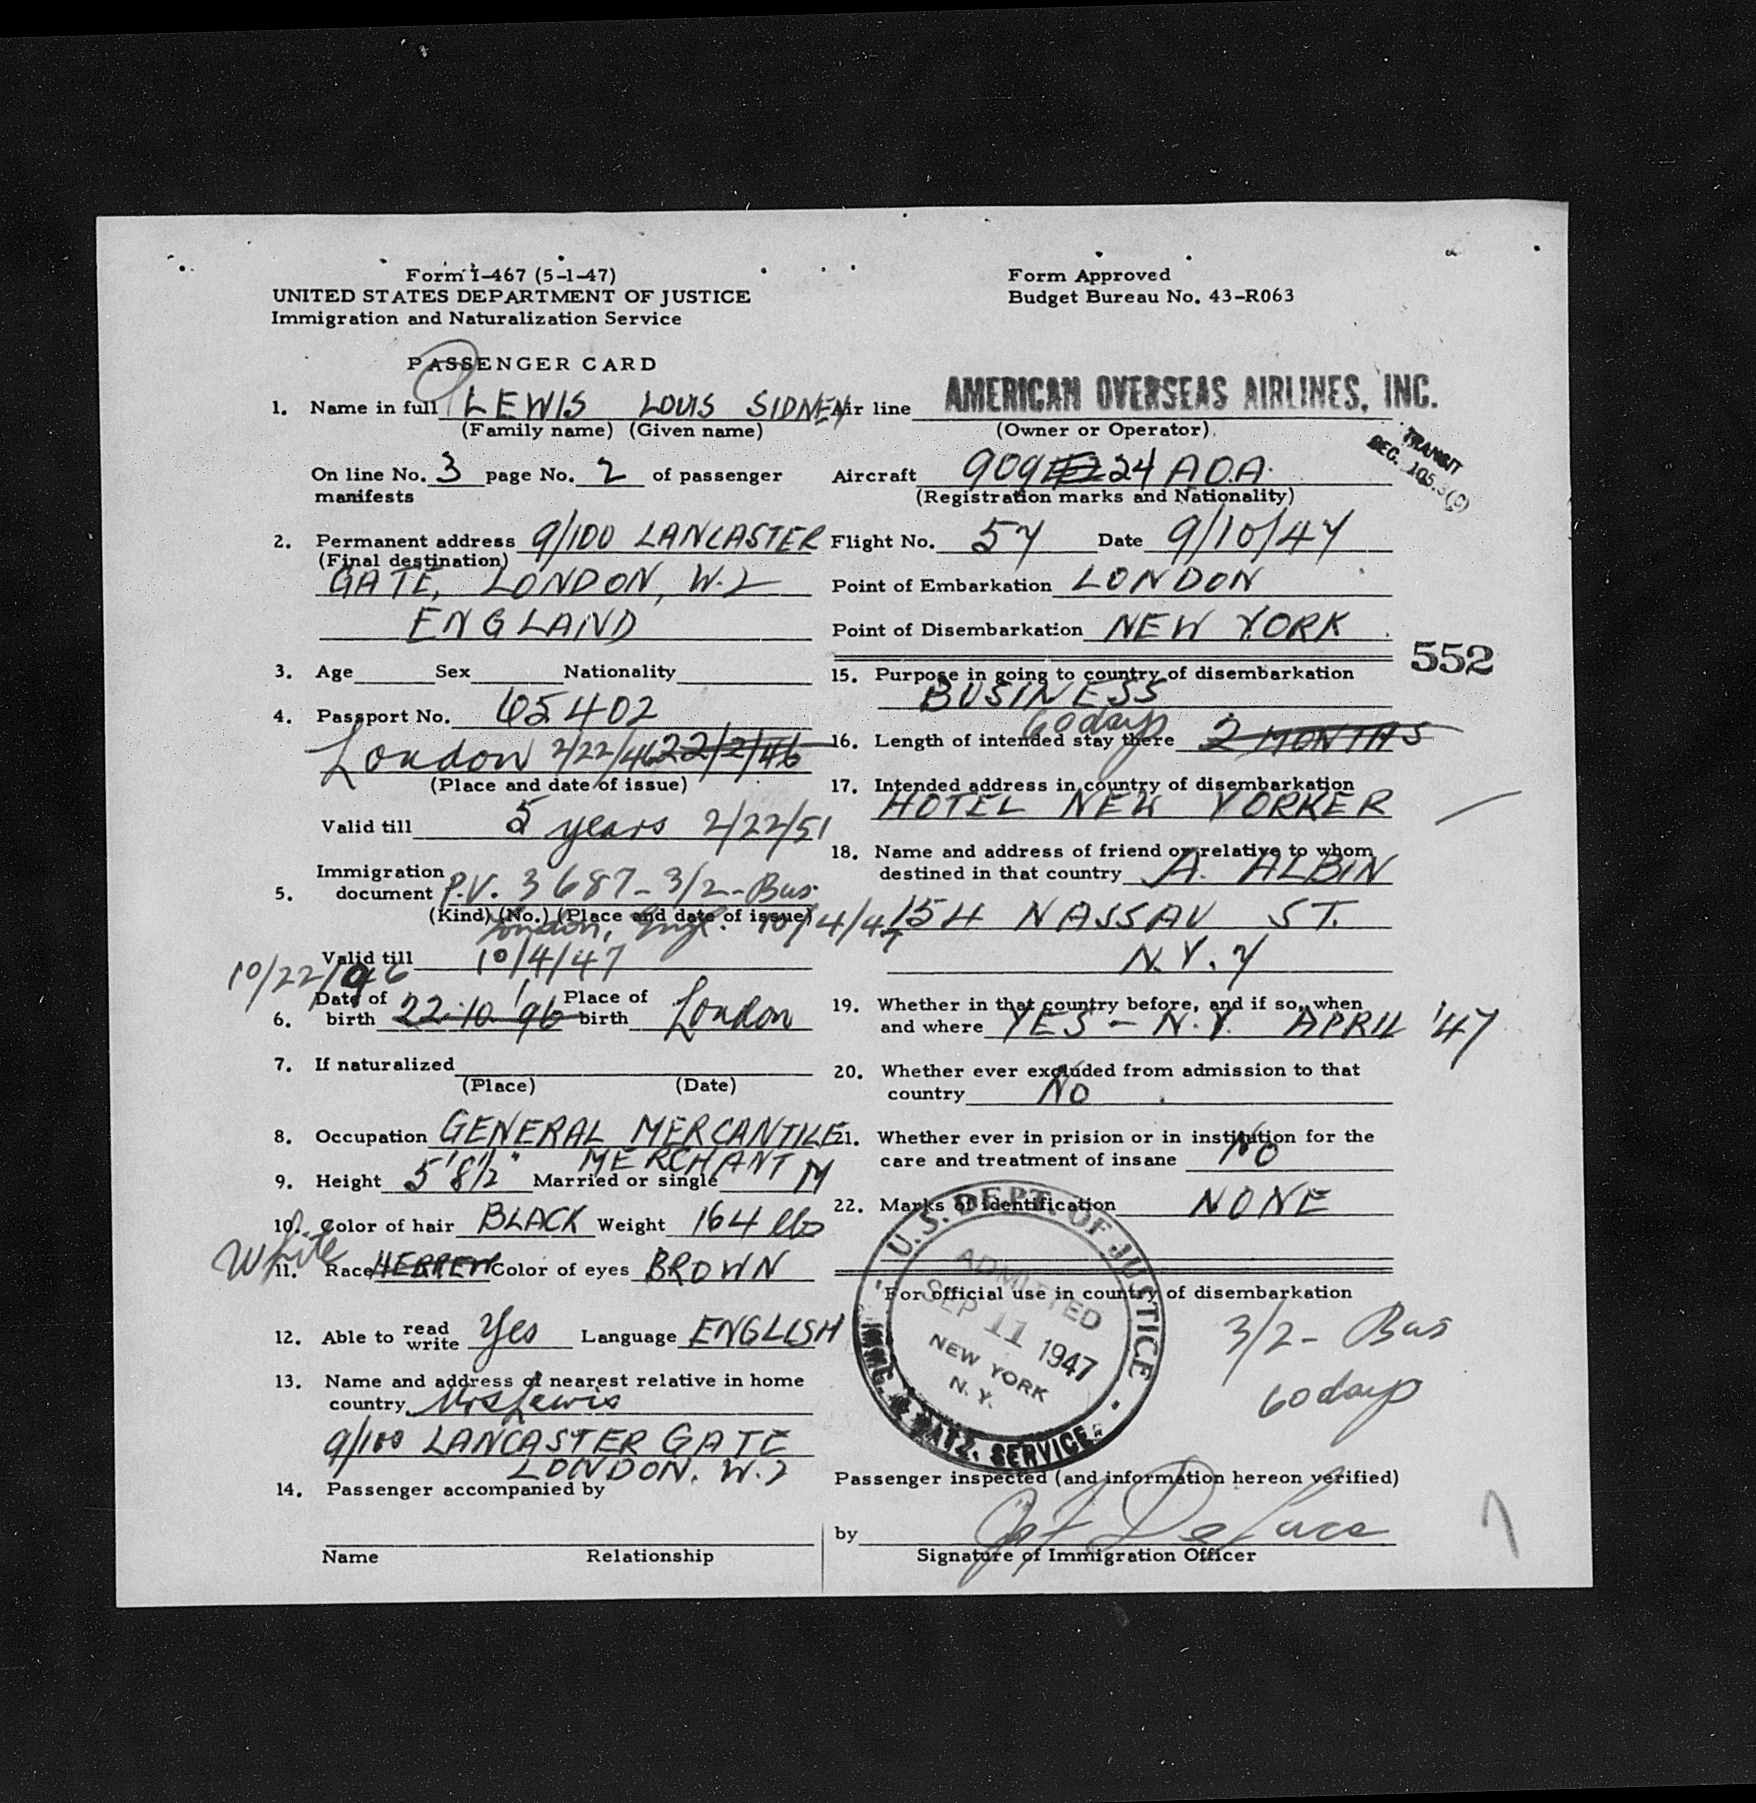 Form I-467 (5-1-47)
UNITED STATES DEPARTMENT OF JUSTICE
Immigration and Naturalization Service
Form Approved
Budget Bureau No. 43-R063
PASSENGER CARD
1. Name in full LEWIS LOUIS SIDNEY
(Family name) (Given name)
On line No. 3 page No. 2 of passenger
manifests
2. Permanent address 9/100 LANCASTER
(Final destination)
GATE, LONDON, W.2
ENGLAND
3. Age Sex Nationality
4. Passport No. 65402
London 2/22/46 22/2/46
(Place and date of issue)
Valid till 5 years 2/22/51
Immigration
5. document P.V. 3687-3/2-Bus.
(Kind) (No.) (Place and date of issue)
London, Engl. 10/4/47
Valid till 10/4/47
10/22/96
Date of Place of
6. birth 22.10.'96 birth London
7. If naturalized
(Place) (Date)
8. Occupation GENERAL MERCANTILE
MERCHANT
9. Height 5'8½" Married or single M
10. Color of hair BLACK Weight 164 lbs
White
11. Race HEBREW Color of eyes BROWN
12. Able to read write Yes Language ENGLISH
13. Name and address of nearest relative in home
country Mrs Lewis
9/100 LANCASTER GATE
LONDON. W.2
14. Passenger accompanied by
Name Relationship
Air line AMERICAN OVERSEAS AIRLINES, INC.
(Owner or Operator)
TRANSIT
SEC. 105.3(C)
Aircraft 909 24 AOA.
(Registration marks and Nationality)
Flight No. 57 Date 9/10/47
Point of Embarkation LONDON
Point of Disembarkation NEW YORK
552
15. Purpose in going to country of disembarkation
BUSINESS
60 days
16. Length of intended stay there 2 MONTHS
17. Intended address in country of disembarkation
HOTEL NEW YORKER
18. Name and address of friend or relative to whom
destined in that country A. ALBIN
154 NASSAU ST.
N.Y. 7
19. Whether in that country before, and if so, when
and where YES - N.Y. APRIL '47
20. Whether ever excluded from admission to that
country NO
21. Whether ever in prision or in institution for the
care and treatment of insane NO
22. Marks of identification NONE
For official use in country of disembarkation
U.S. DEPT. OF JUSTICE
ADMITTED
SEP 11 1947
NEW YORK
N.Y.
IMMG. & NATZ. SERVICE
3/2- Bus
60 days
Passenger inspected (and information hereon verified)
by
Signature of Immigration Officer